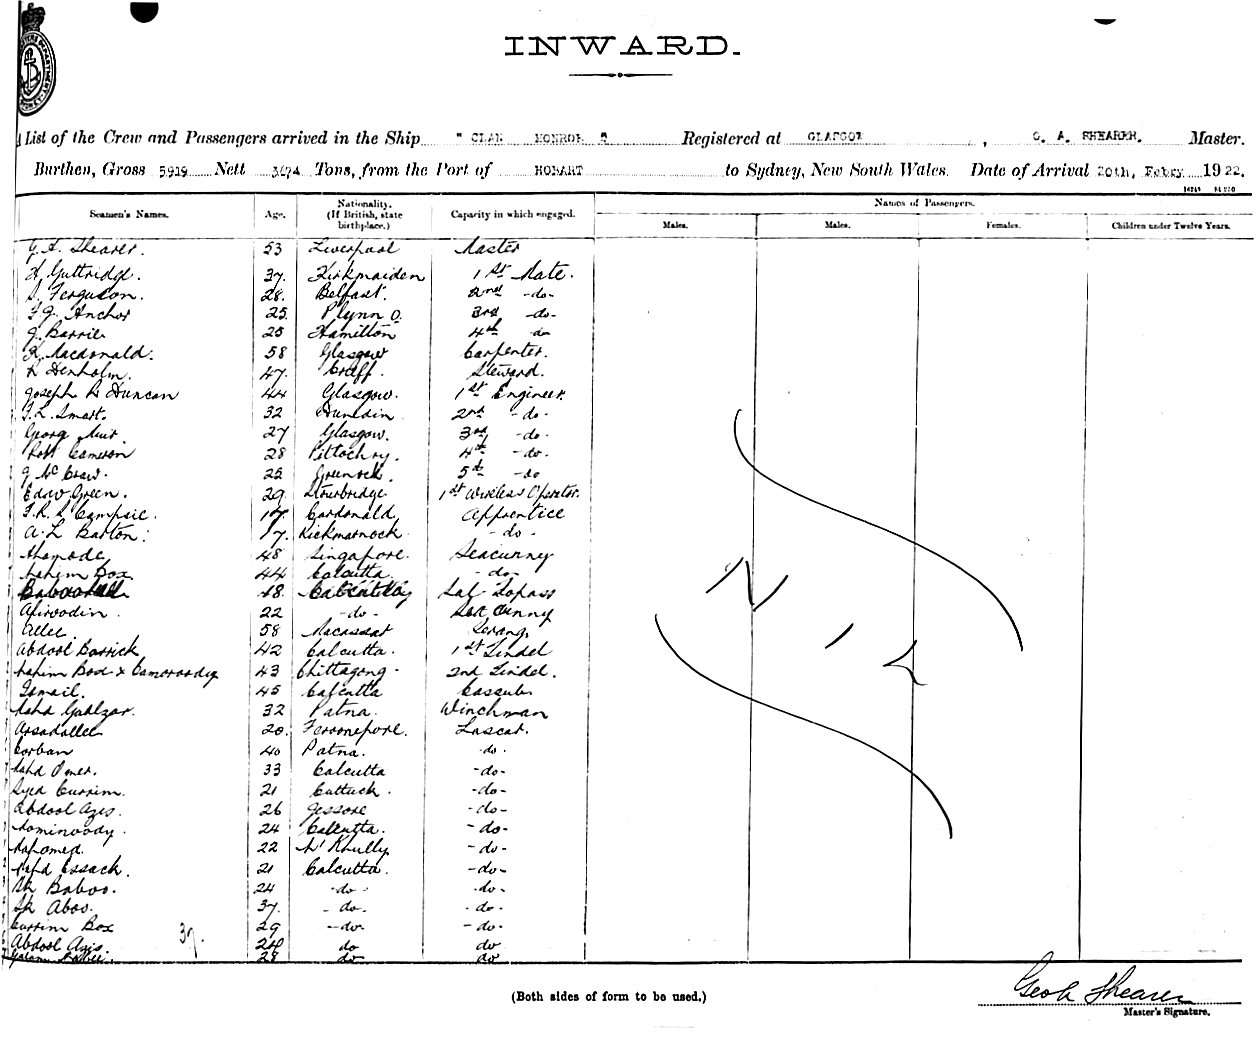 INWARD.
List of the Crew and Passengers arrived in the Ship " CLAN MONROE " Registered at GLASGOW , G. A. SHEARER. Master.
Burthen, Gross 5919 Nett 3674 Tons, from the Port of HOBART to Sydney, New South Wales. Date of Arrival 20th, Febry 1922.
Names of Passengers.
Seamen's Names. Age. Nationality. (If British, state birthplace.) Capacity in which engaged. Males. Males. Females. Children under Twelve Years.
G. A. Shearer. 53 Liverpool Master
H. Guttridge. 37. Kirkmaiden 1st Mate.
S. Ferguson. 28. Belfast. 2nd -do-
F. G. Anchor 25. 3rd -do-
J. Barrie 25 Hamilton 4th do
K. Macdonald. 58 Glasgow Carpenter.
R Denholm. 47. Crieff. Steward.
Joseph R Duncan 44 Glasgow. 1st Engineer.
J. L. Smart. 32 Dunedin 2nd -do-
George Muir. 27 Glasgow. 3rd -do-
Robt Cameron 28 Pitlochry. 4th -do-
J McCraw. 25 Greenock. 5th -do
Edw Green. 29. Stourbridge 1st Wireless Operator.
F. R. L Campsie. 17. Cardonald Apprentice
A. L Barton. 17. Kickmarnock -do-
Ahamode 48 Singapore. Seacunny
Rahim Box 44 Calcutta -do-
18.
22 -do- Sea Cunny
Allee. 58 Macassar Serang.
Abdool Barrick 42 Calcutta. 1st Tindel
Rahim Box x 43 Chittagong - 2nd Tindel.
Ismail. 45 Calcutta Cassub
Mahd Gulzar. 32 Patna. Winchman
Assadallee 20. Ferosepore. Lascar.
Corban 40 Patna. -do-
Mahd Omer. 33 Calcutta -do-
Syed Currim. 21 Cuttack. -do-
Abdool Azis. 26 Jessore -do-
Mominoody. 24 Calcutta. -do-
Mahomed. 22 -do-
Mahd Essack. 21 Calcutta. -do-
Sk Baboo. 24 -do- -do-
Sk Aboo. 37. -do- -do-
Currim Box 29 -do- -do-
Abdool Azis. do do
28 do do
37.
Nil
(Both sides of form to be used.)
Geo A Shearer
Master's Signature.